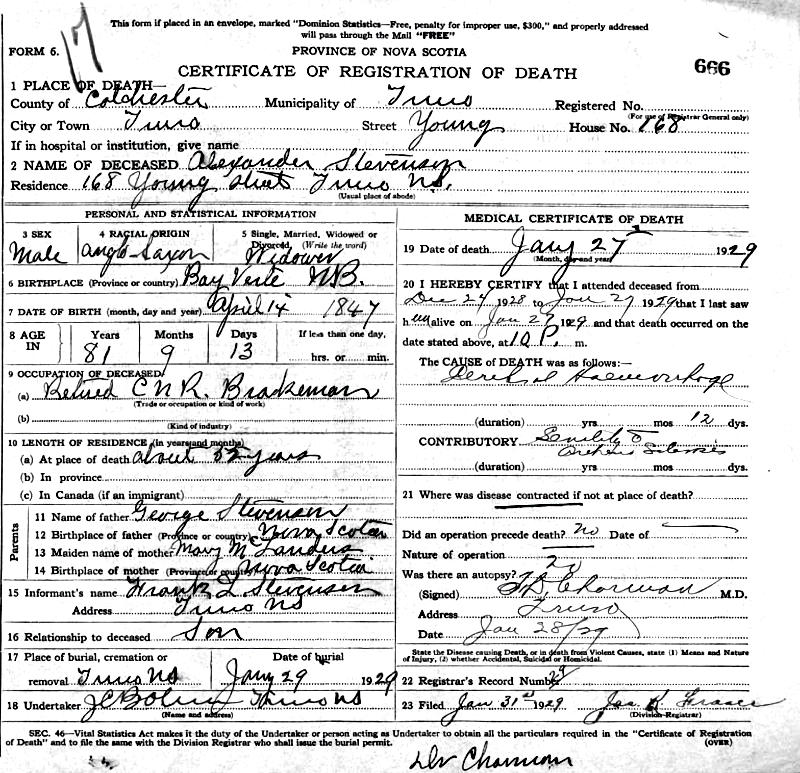 17
This form if placed in an envelope, marked "Dominion Statistics—Free, penalty for improper use, $300," and properly addressed
will pass through the Mail "FREE"
FORM 6.
PROVINCE OF NOVA SCOTIA
CERTIFICATE OF REGISTRATION OF DEATH
666
1 PLACE OF DEATH—
County of Colchester Municipality of Truro Registered No.
(For use of Registrar General only)
City or Town Truro Street Young House No. 168
If in hospital or institution, give name
2 NAME OF DECEASED Alexander Stevenson
Residence 168 Young Street Truro N.S.
(Usual place of abode)
PERSONAL AND STATISTICAL INFORMATION
3 SEX Male
4 RACIAL ORIGIN Anglo-Saxon
5 Single, Married, Widowed or
Divorced, (Write the word)
Widower
6 BIRTHPLACE (Province or country) Bay Verte N.B.
7 DATE OF BIRTH (month, day and year) April 14 1847
8 AGE IN
Years Months Days If less than one day,
81 9 13 hrs. or min.
9 OCCUPATION OF DECEASED
(a) Retired C N R. Brakeman
(Trade or occupation or kind of work)
(b)
(Kind of industry)
10 LENGTH OF RESIDENCE (in years and months)
(a) At place of death about 52 years
(b) In province
(c) In Canada (if an immigrant)
Parents
11 Name of father George Stevenson
12 Birthplace of father (Province or country) Nova Scotia
13 Maiden name of mother Mary
14 Birthplace of mother (Province or country) Nova Scotia
15 Informant's name Frank L Stevenson
Address Truro NS
16 Relationship to deceased Son
17 Place of burial, cremation or Date of burial
removal Truro NS Jany 29 1929
18 Undertaker Truro NS
(Name and address)
MEDICAL CERTIFICATE OF DEATH
19 Date of death Jany 27 1929
(Month, day and year)
20 I HEREBY CERTIFY that I attended deceased from
Dec 27 1928 to Jan 27 1929 that I last saw
h im alive on Jan 27 1929 and that death occurred on
date stated above, at 10 P. m.
The CAUSE of DEATH was as follows:
Cerebral Haemorrhage
(duration) yrs mos 12 dys.
CONTRIBUTORY Senility &
(duration) yrs mos dys.
21 Where was disease contracted if not at place of death?
Did an operation precede death? no Date of
Nature of operation
Was there an autopsy? no
(Signed) M.D.
Address Truro
Date Jan 28/29
State the Disease causing Death, or in death from Violent Causes, state (1) Means and Nature
of Injury, (2) whether Accidental, Suicidal or Homicidal.
22 Registrar's Record Number 29
23 Filed Jan 31st 1929 Jas K Fraser
(Division-Registrar)
SEC. 46—Vital Statistics Act makes it the duty of the Undertaker or person acting as Undertaker to obtain all the particulars required in the "Certificate of Registration
of Death" and to file the same with the Division Registrar who shall issue the burial permit. (OVER)
Dr